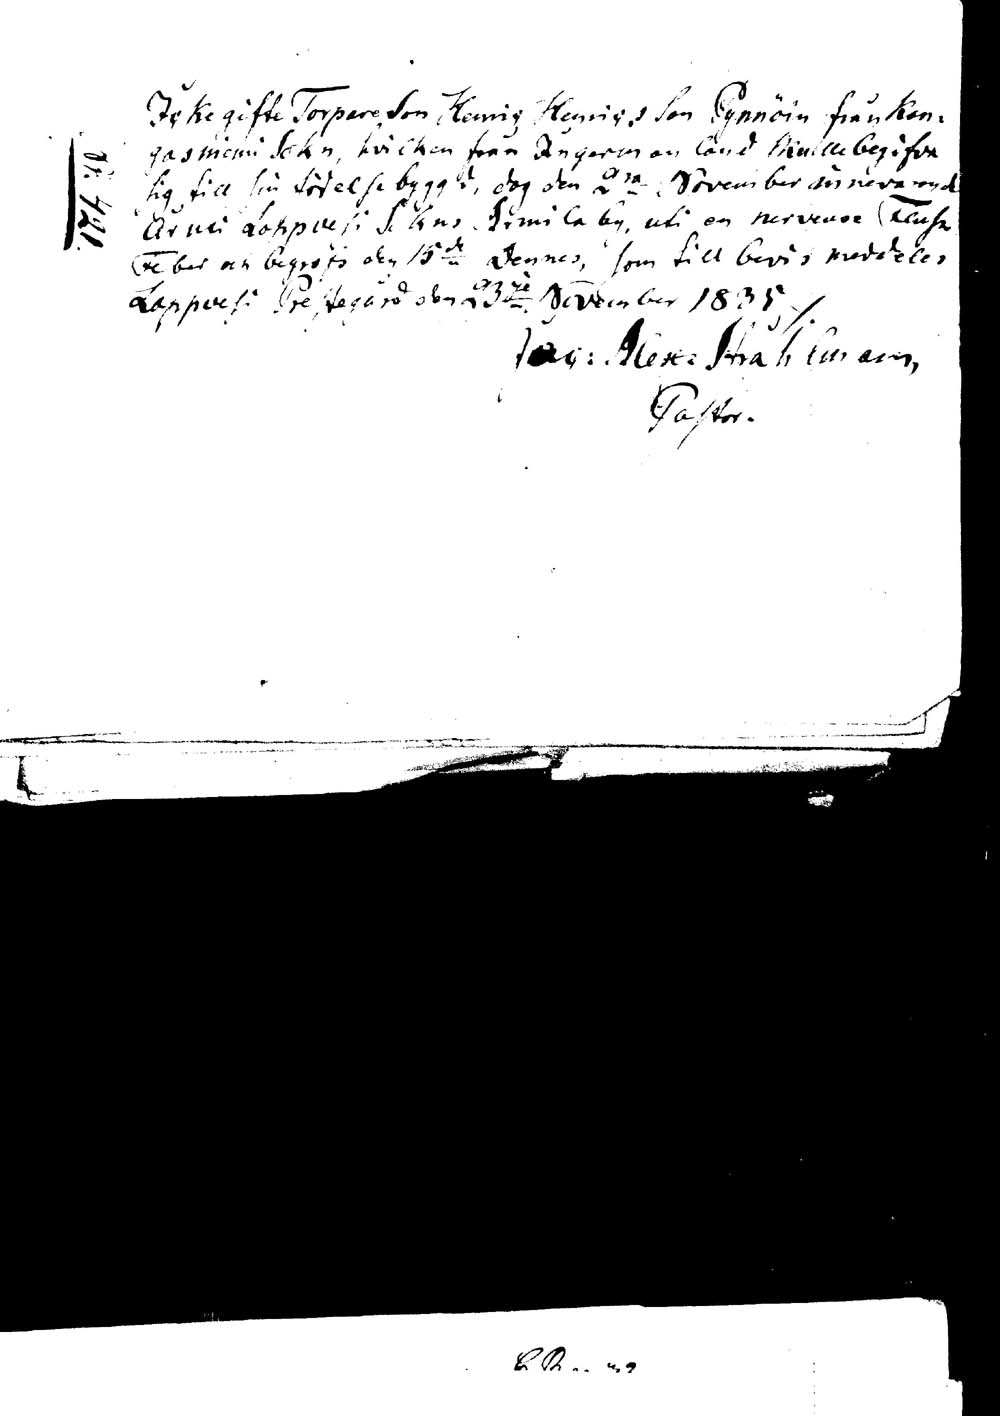 Icke gifte Torpare Son Henric Henrics Son Pynnöin från Kan-
gasniemi Sokn, hvilken från Ingermanland skulle begifva
sig till sin födelsebyggd, dog den 2dra November innevarande
År uti Lappvesi Sokns Armila by, uti en nerveuse
feber och begrofs den 15de Dennes, som till bevis meddeles
Lappvesi Prestegård den 23die November 1835
Jac: Alex: Strahlmann,
Pastor.